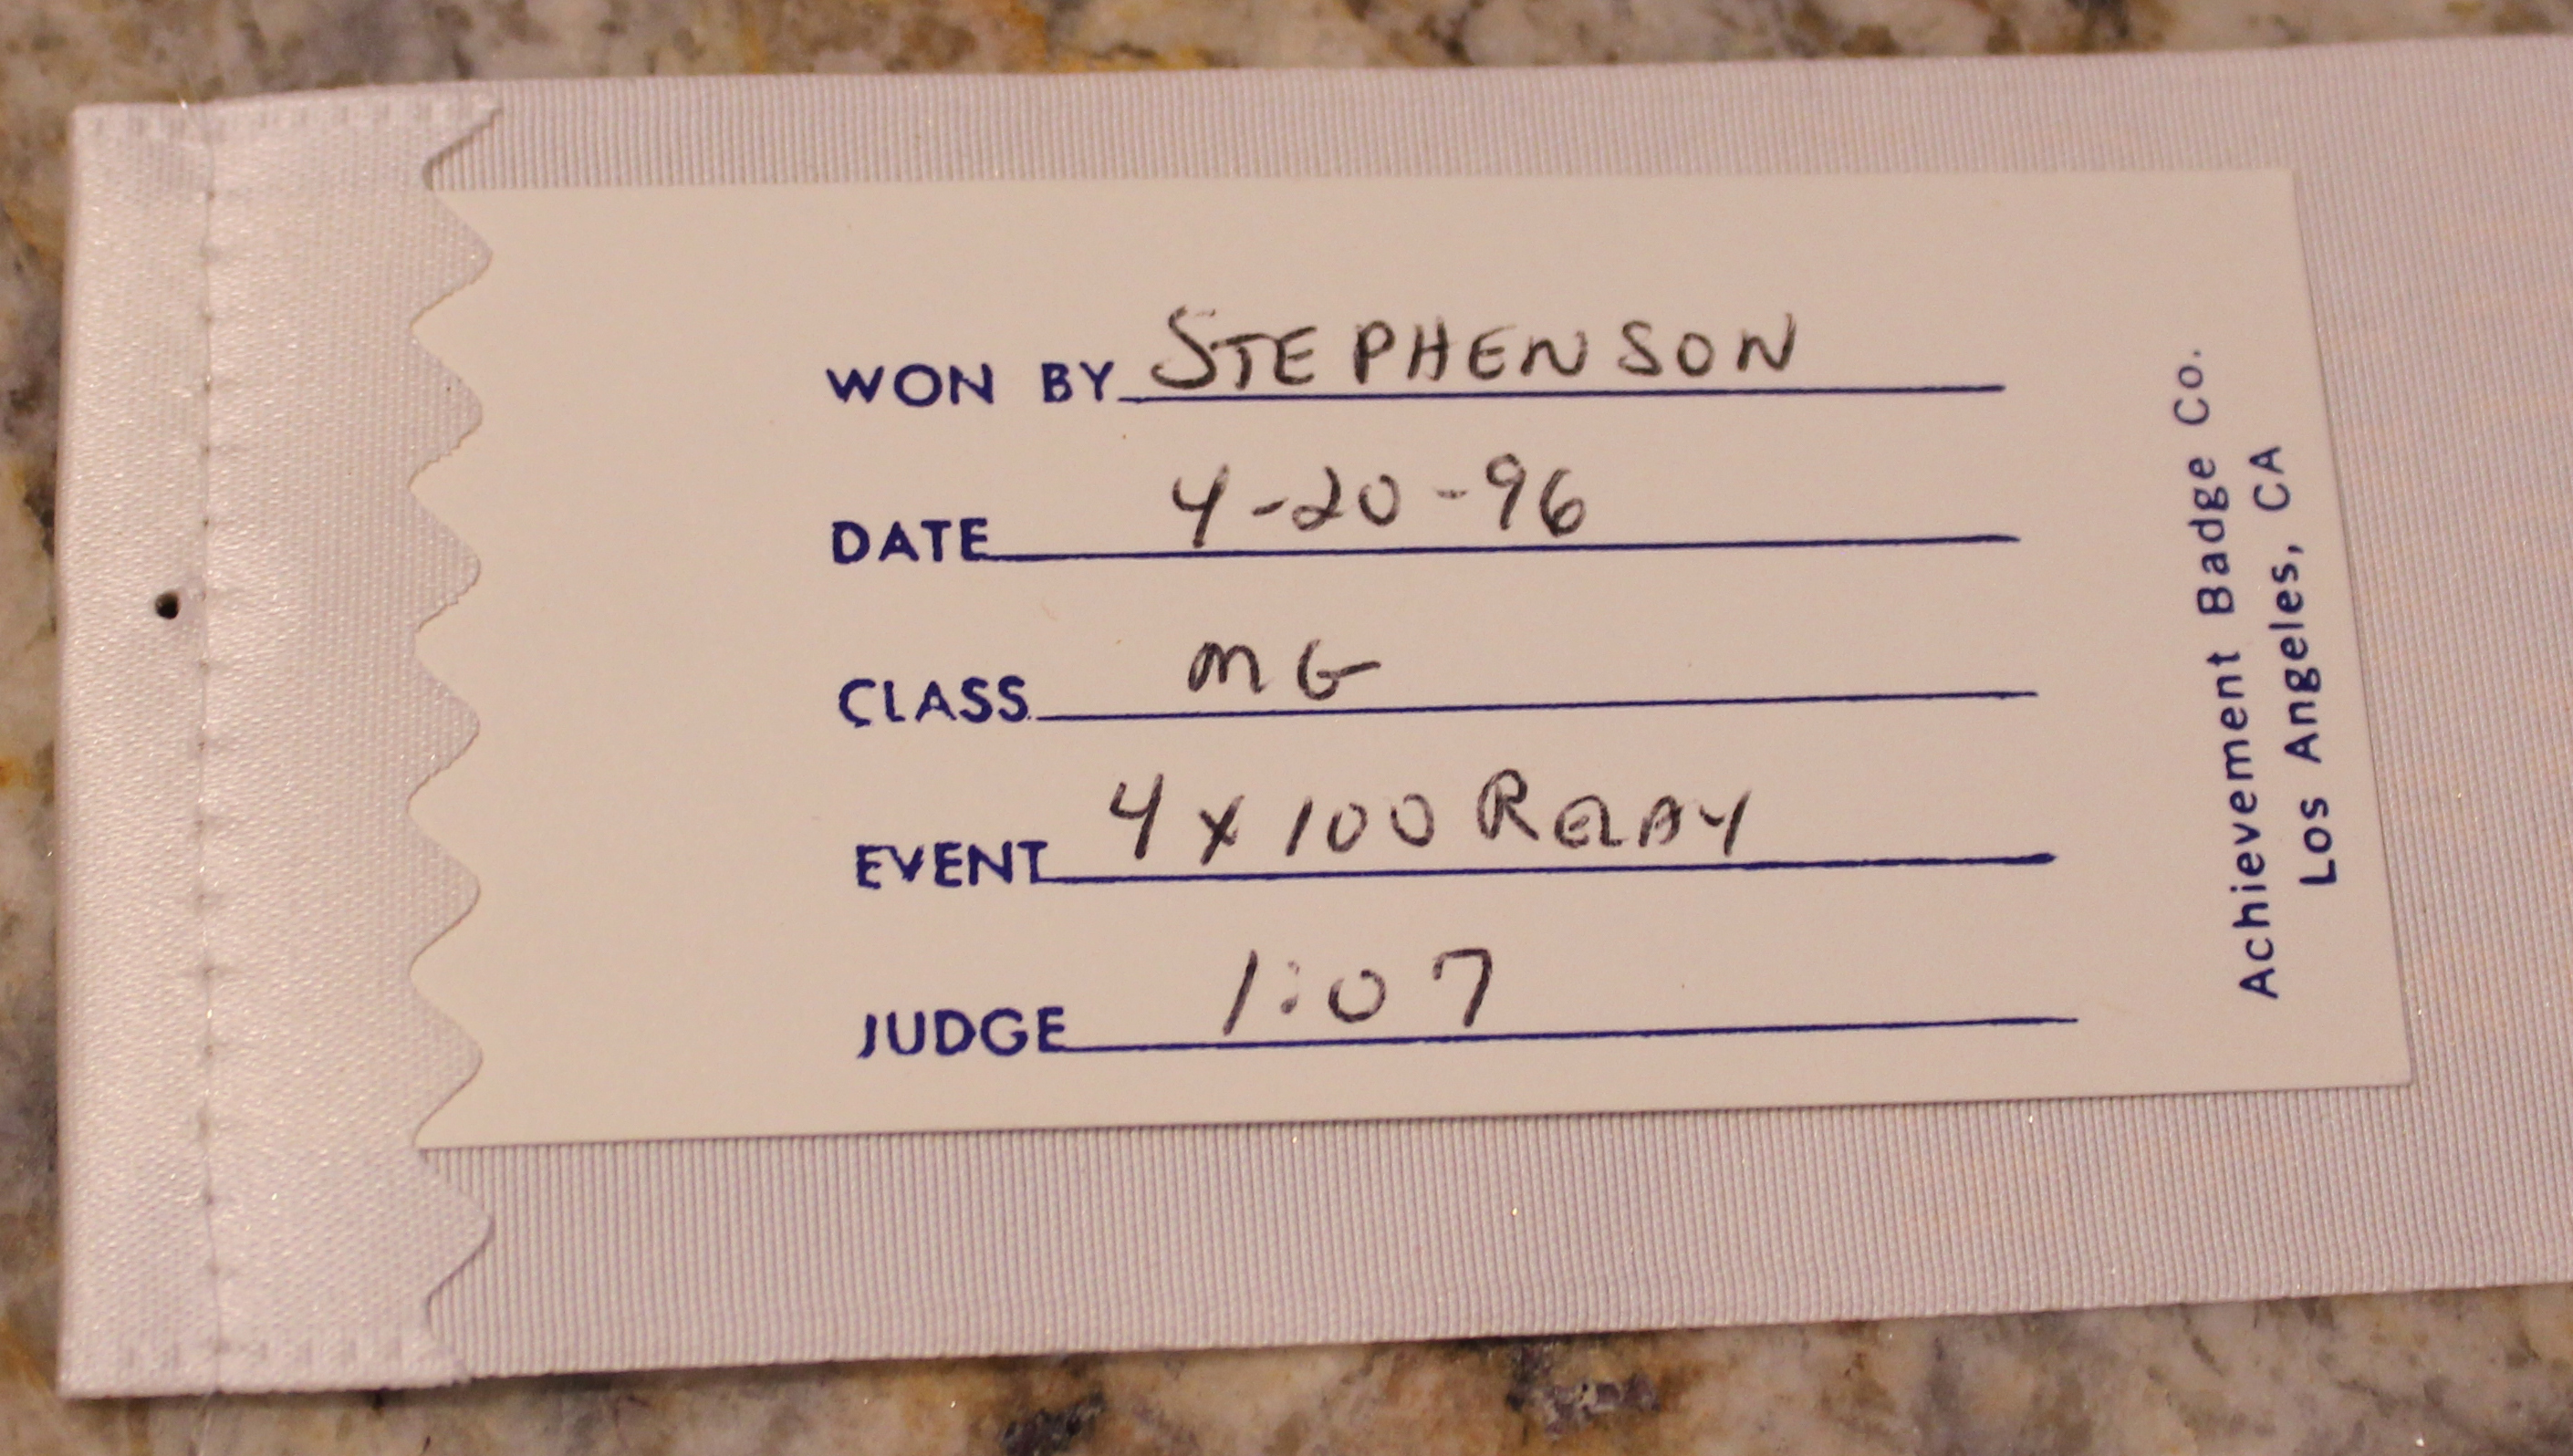 WON BY STEPHENSON
DATE 4-20-96
CLASS MG
EVENT 4x100 RELAY
JUDGE 1:07
Achievement Badge Co.
Los Angeles, CA